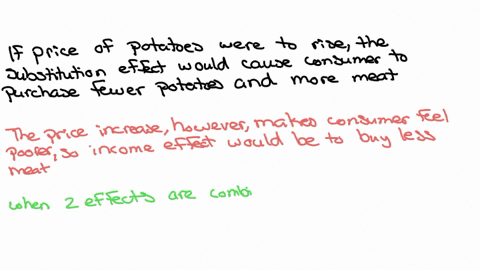 If price of potatoes were to rise, the
substitution effect would cause consumer to
purchase fewer potatoes and more meat
The price increase, however, makes consumer feel
poorer, so income effect would be to buy less
meat
when 2 effects are combi